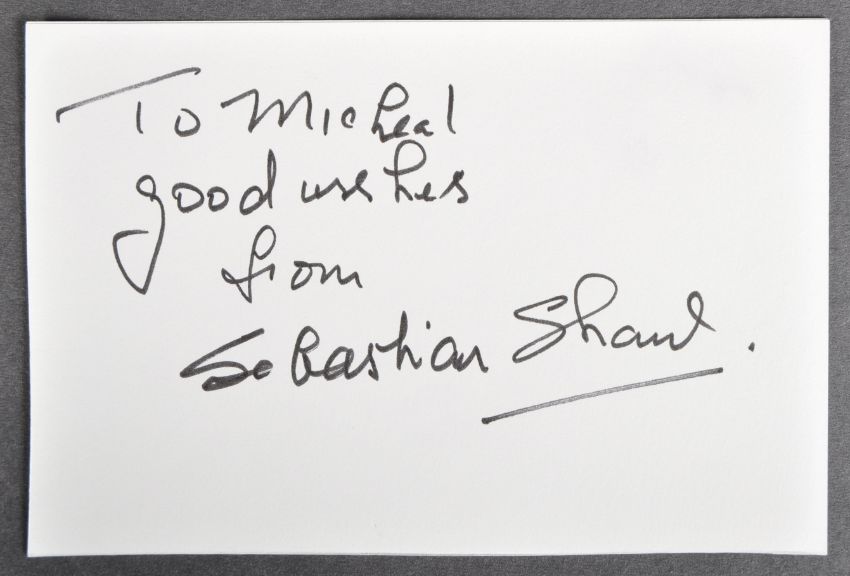 To Micheal
good wishes
from
Sebastian Shaw.